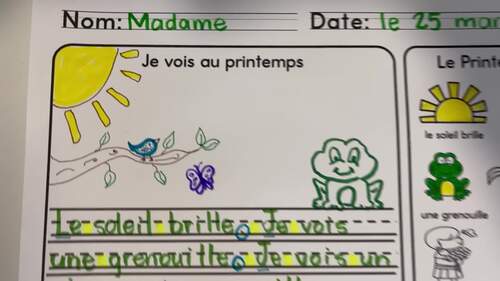 Nom: Madame
Date: le 25 mai
Je vois au printemps
Le soleil brille. Je vois
une grenouille. Je vois un
Le Print
le soleil brille
une grenouille